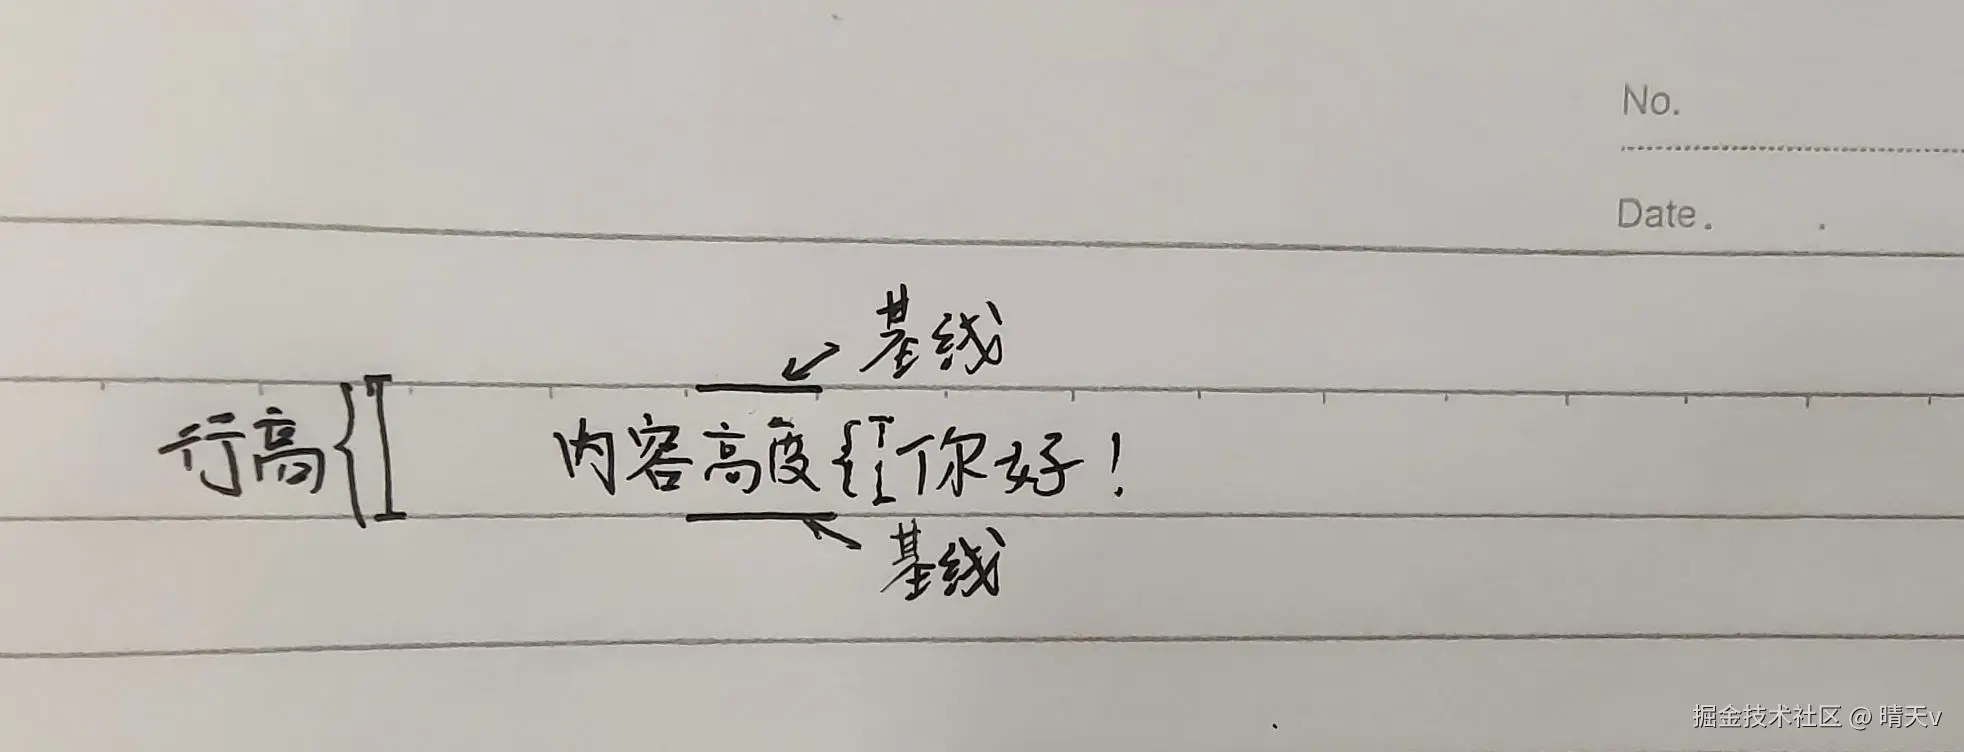 No.
Date.
基线
行高
内容高度
你好！
基线
掘金技术社区 @ 晴天v